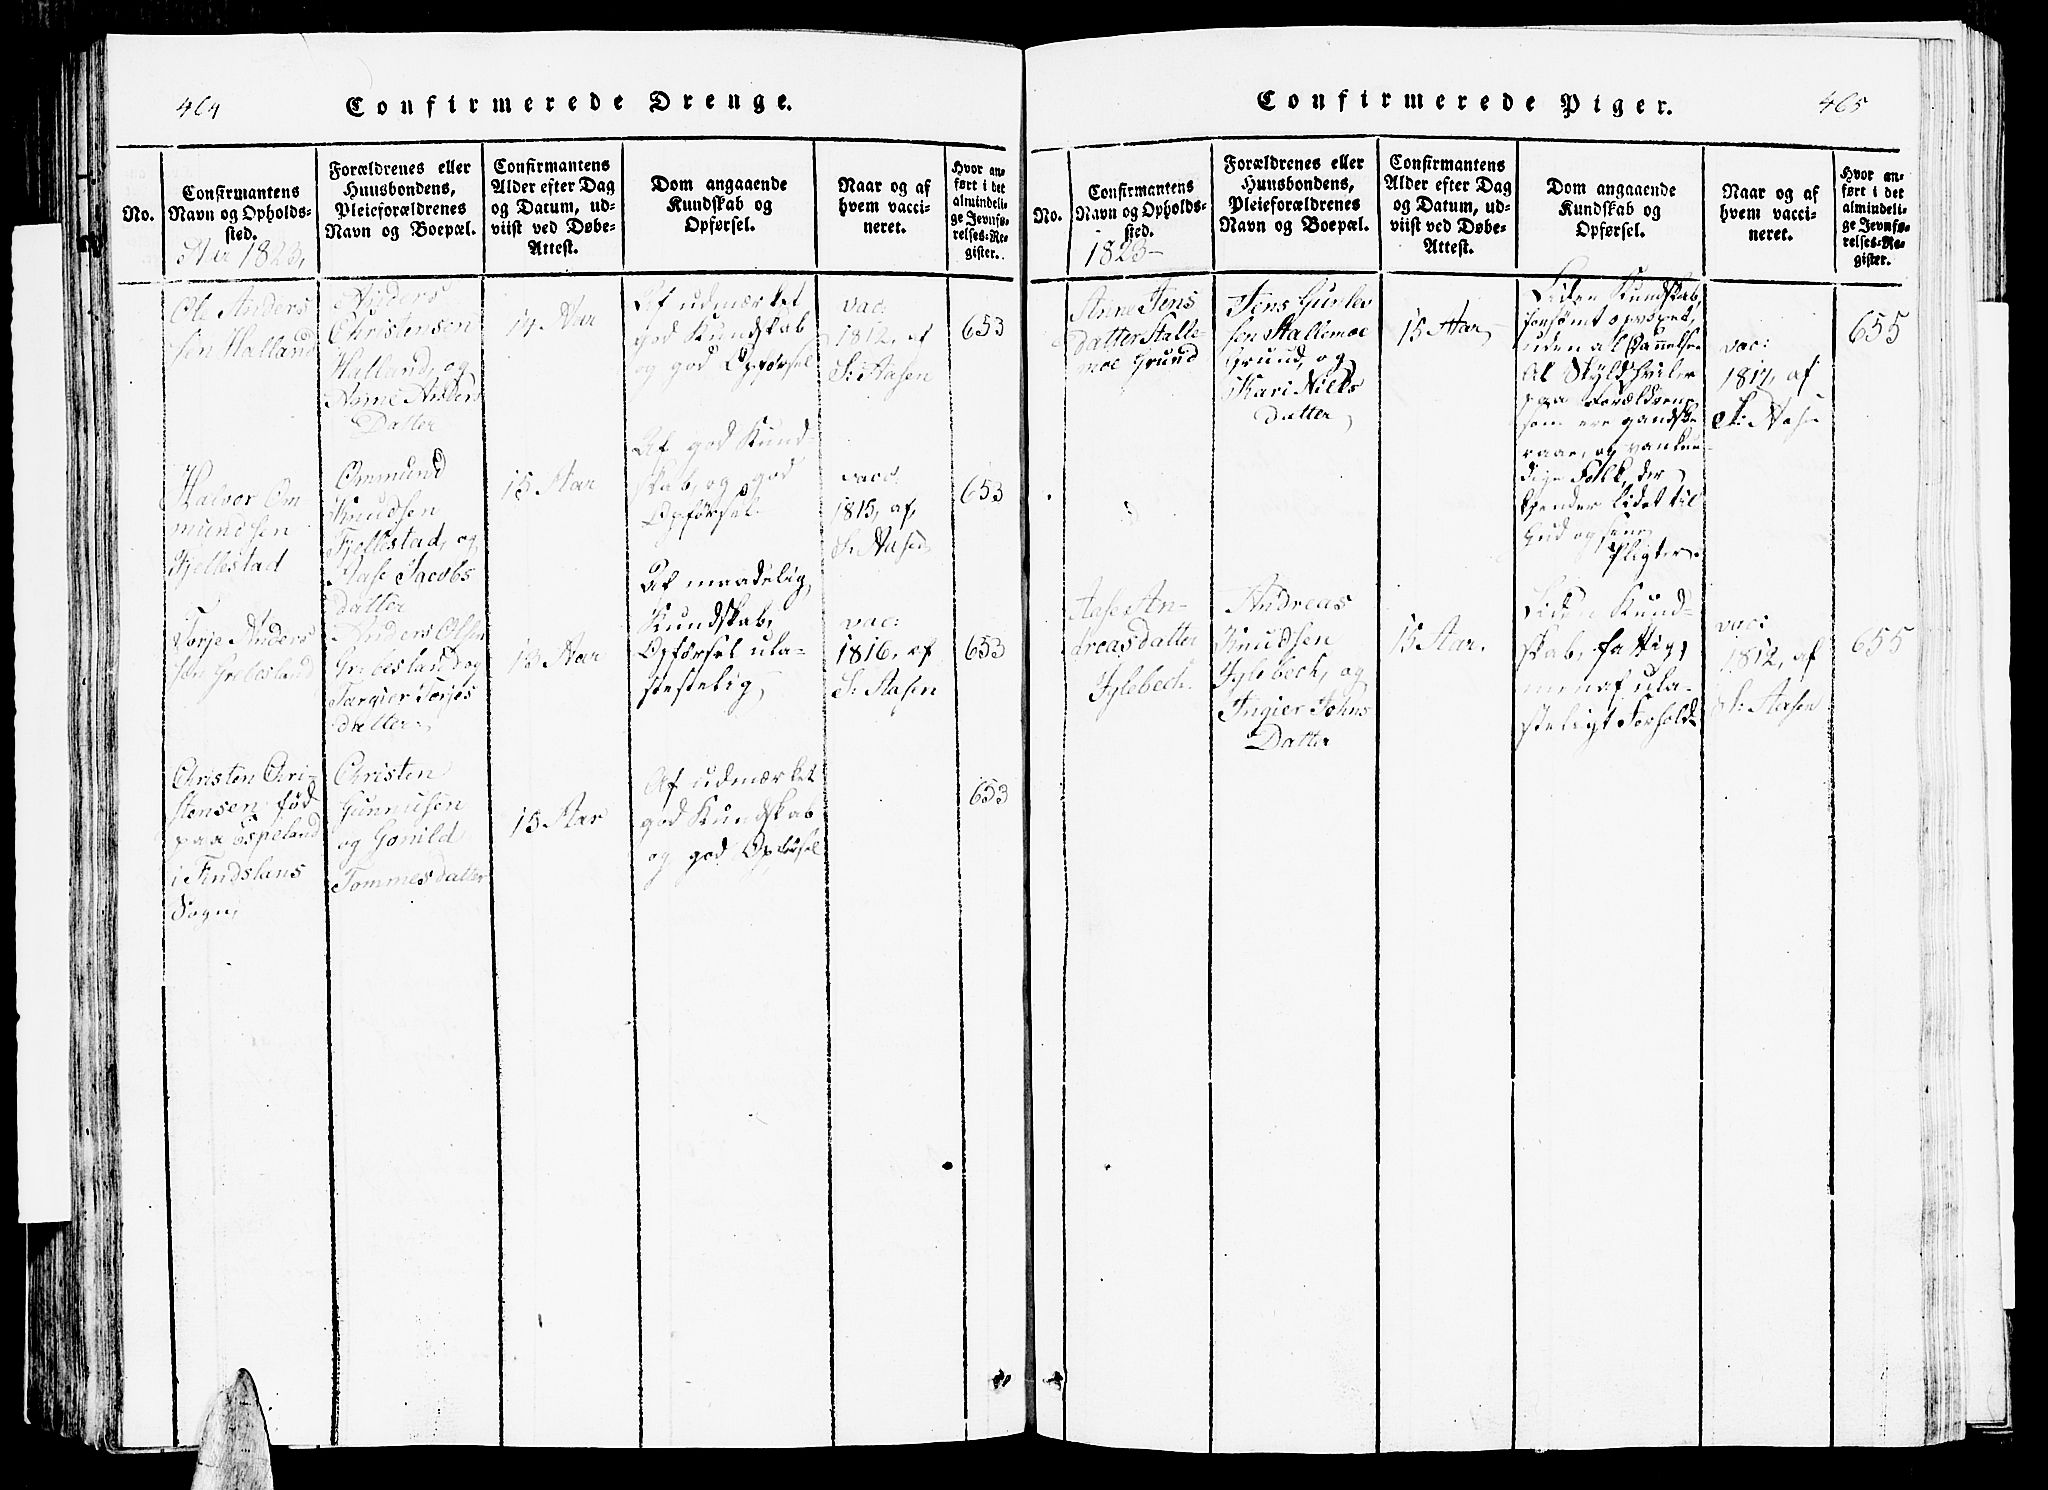 464
Confirmerede Drenge.
No.
Confirmantens
Navn og Opholds-
sted.
Aar 1823,
Forældrenes eller
Huusbondens,
Pleieforældrenes
Navn og Boepæl.
Confirmantens
Alder efter Dag
og Datum, ud-
viist ved Døbe-
Attest.
Dom angaaende
Kundskab og
Opførsel.
Naar og af
hvem vacci-
neret.
Hvor an-
ført i det
almindeli-
ge Jevnfø-
relses-Re-
gister.
Ole Anders
sen Halland
Anders
Christensen
Halland, og
Anne Anders
Datter
14 Aar
Af udmærket
god Kundskab
og god Opførsel
vac:
1812, af
S: Aasen
653
Halvor Om
mundsen
Fjellestad
Ommund
Knudsen
Fjellestad, og
Aase Jacobs
datter
15 Aar
Af god Kund-
skab, og god
Opførsel
vacc:
1815, af,
S: Aasen
653
Torje Anders
sen Grebesland
Anders Olsen
Grebesland og
Targier Torjes
datter
15 Aar
Af maadelig
Kundskab,
Opførsel ula-
stestelig
vac:
1816, af
S: Aasen
653
Christen Chri-
stensen, fød
paa Espeland
i Findslans
Sogn,
Christen
Gunnusen
og Gonild
Tommesdatter
15 Aar
Af udmærket
god Kundskab
og god Opførsel
653
Confirmerede Piger.
465
No.
Confirmantens
Navn og Opholds-
sted.
1823-
Forældrenes eller
Huusbondens,
Pleieforældrenes
Navn og Boepæl.
Confirmantens
Alder efter Dag
og Datum, ud-
viist ved Døbe-
Attest.
Dom angaaende
Kundskab og
Opførsel.
Naar og af
hvem vacci-
neret.
Hvor an-
ført i det
almindeli-
ge Jevnfø-
relses-Re-
gister.
Anne Jens
datter Stalle-
moe Grund
Jens Gunlev
sen Stallemoe
Grund, og
Kari Niels
datter
15 Aar
Liden Kundskab,
forsømt opvoxet,
uden al Dannelse
Al Skyld hviler
paa Forældrene
som ere gandske
raae, og vankun-
dige Folk, der
kjender lidet til
Gud og sine
Pligter.
vac:
1817, af
S: Aasen
655
Aase An-
dreasdatter
Iglebech.
Andreas
Knudsen
Iglebech, og
Ingier Johns
Datter
15 Aar.
Liden Kund-
skab, fattig,
men af ula-
steligt Forhold
vac:
1812, af
S: Aasen
655